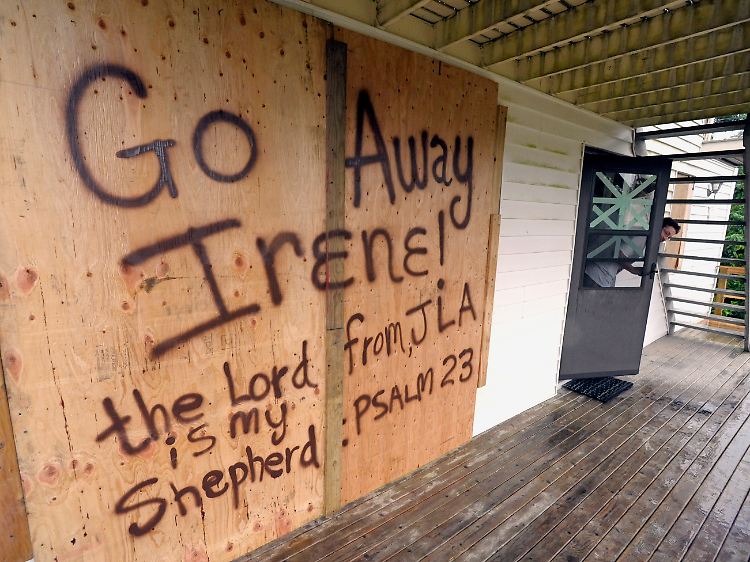 Go Away
Irene!
from, JLA
the Lord
is my
Shepherd : PSALM 23